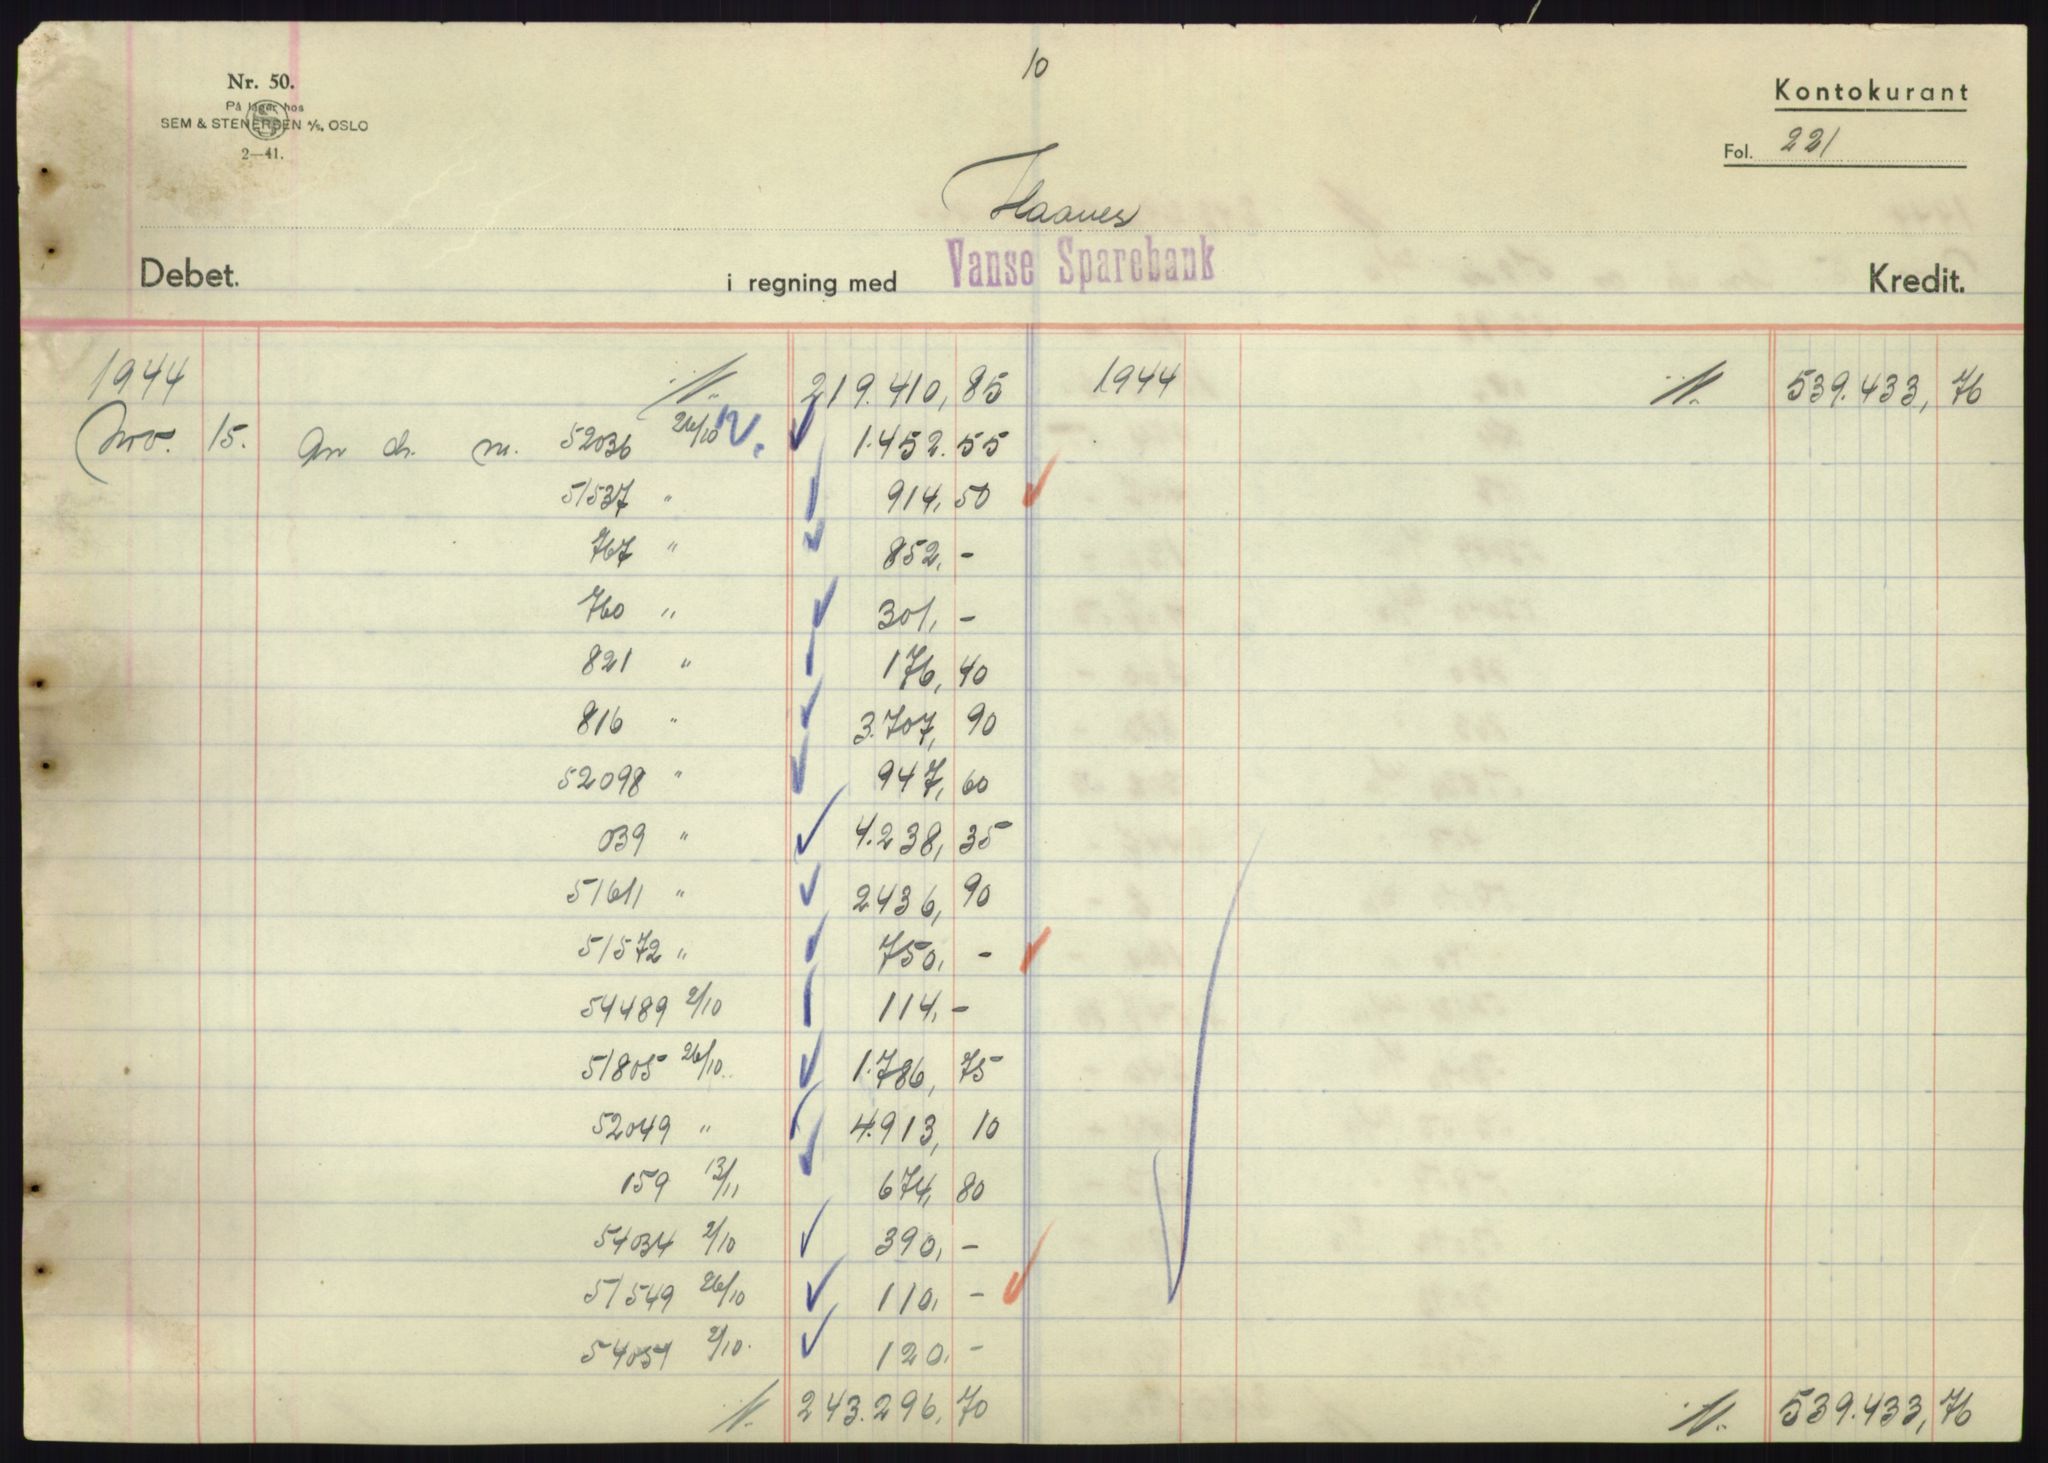 10
Nr. 50.
På lager hos
SEM & STENERSEN A/S, OSLO
2—41.
Kontokurant
Fol. 221
Haanes
Debet. i regning med Vanse Sparebank Kredit.
1944 219.410,85 1944 539.433,76
Nov. 15. An ch. nr. 52036 26/10 1.452.55
51537 " 914,50
767 " 852,-
760 " 301,-
821 " 176,40
816 " 3.707,90
52098 " 947,60
039 " 4.238,35
51611 " 2436,90
51572 " 750,-
54489 2/10 114,-
51805 26/10 1.786,75
52049 " 4.913,10
159 13/11 674,80
54034 2/10 390,-
51549 26/10 110,-
54051 2/10 120,-
243.296,70 539.433,76